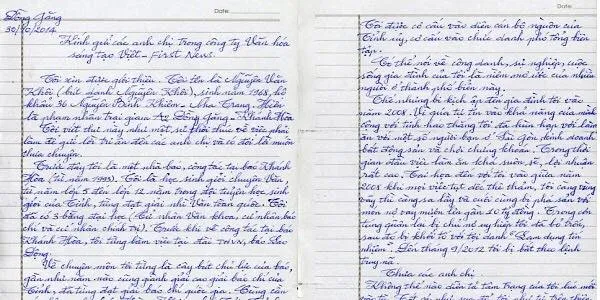 Đồng Găng
30/10/2014
Date:
Kính gửi các anh chị trong công ty Văn hóa
sáng tạo Việt - First News.
Tôi xin được giới thiệu. Tôi tên là Nguyễn Văn
Khôi (bút danh Nguyễn Khôi), sinh năm 1968, hộ
khẩu 36 Nguyễn Bỉnh Khiêm - Nha Trang. Hiện
là phạm nhân trại giam A2 Đồng Găng - Khánh Hòa.
Tôi viết thư này như một sự thôi thúc về việc phải
làm để gửi lời tri ân đến các anh chị và có đôi lời muốn
chia chuyện.
Trước đây tôi là một nhà báo, công tác tại báo Khánh
Hòa (từ năm 1995). Tôi là học sinh giỏi chuyên Văn
từ năm lớp 5 đến lớp 12 nằm trong đội tuyển học sinh
giỏi của Tỉnh, từng đạt giải nhì Văn toàn quốc. Tôi
đã có 3 bằng đại học (Cử nhân Văn khoa, cử nhân báo
chí và cử nhân chính trị). Trước khi về công tác tại báo
Khánh Hòa, tôi từng bấm víu tại đài THVN, báo Lao
Động.
Về chuyên môn tôi từng là cây bút chủ lực của báo,
gần như năm nào cũng giành giải cao giải báo chí của
Tỉnh, đã từng đạt giải báo chí quốc gia.
Date:
Tôi được cơ cấu vào diện cán bộ nguồn của
Tỉnh ủy, cơ cấu vào chức danh phó tổng biên
tập.
Có thể nói về công danh, sự nghiệp, cuộc
sống gia đình của tôi là niềm mơ ước của nhiều
người ở thành phố biển này.
Thế nhưng bi kịch ập đến gia đình tôi vào
năm 2008. Vì quá tự tin vào khả năng của mình
cộng với tính hao thắng tôi đã hùn hạp vốn làm
ăn với một số người bạn ở Sài Gòn, kinh doanh
bất động sản và chơi chứng khoán. Trong thời
gian đầu việc làm ăn khá suôn sẻ, lợi nhuận
rất cao. Tai họa đến với tôi vào giữa năm
2008 khi mọi việc tụt dốc thê thảm, tôi càng vùng
vẫy thì càng sa lầy và cuối cùng bị phá sản với
món nợ vay mượn lên gần 10 tỷ đồng. Trong cơn
túng quẫn lại bị chủ nợ uy hiếp tôi đã bỏ trốn,
sau đó bị khởi tố với tội danh "Lạm dụng tín
nhiệm". Đến tháng 9/2012 tôi bị bắt theo lệnh
truy nã.
Thưa các anh chị
Không thể nào diễn tả tâm trạng của tôi lúc mới